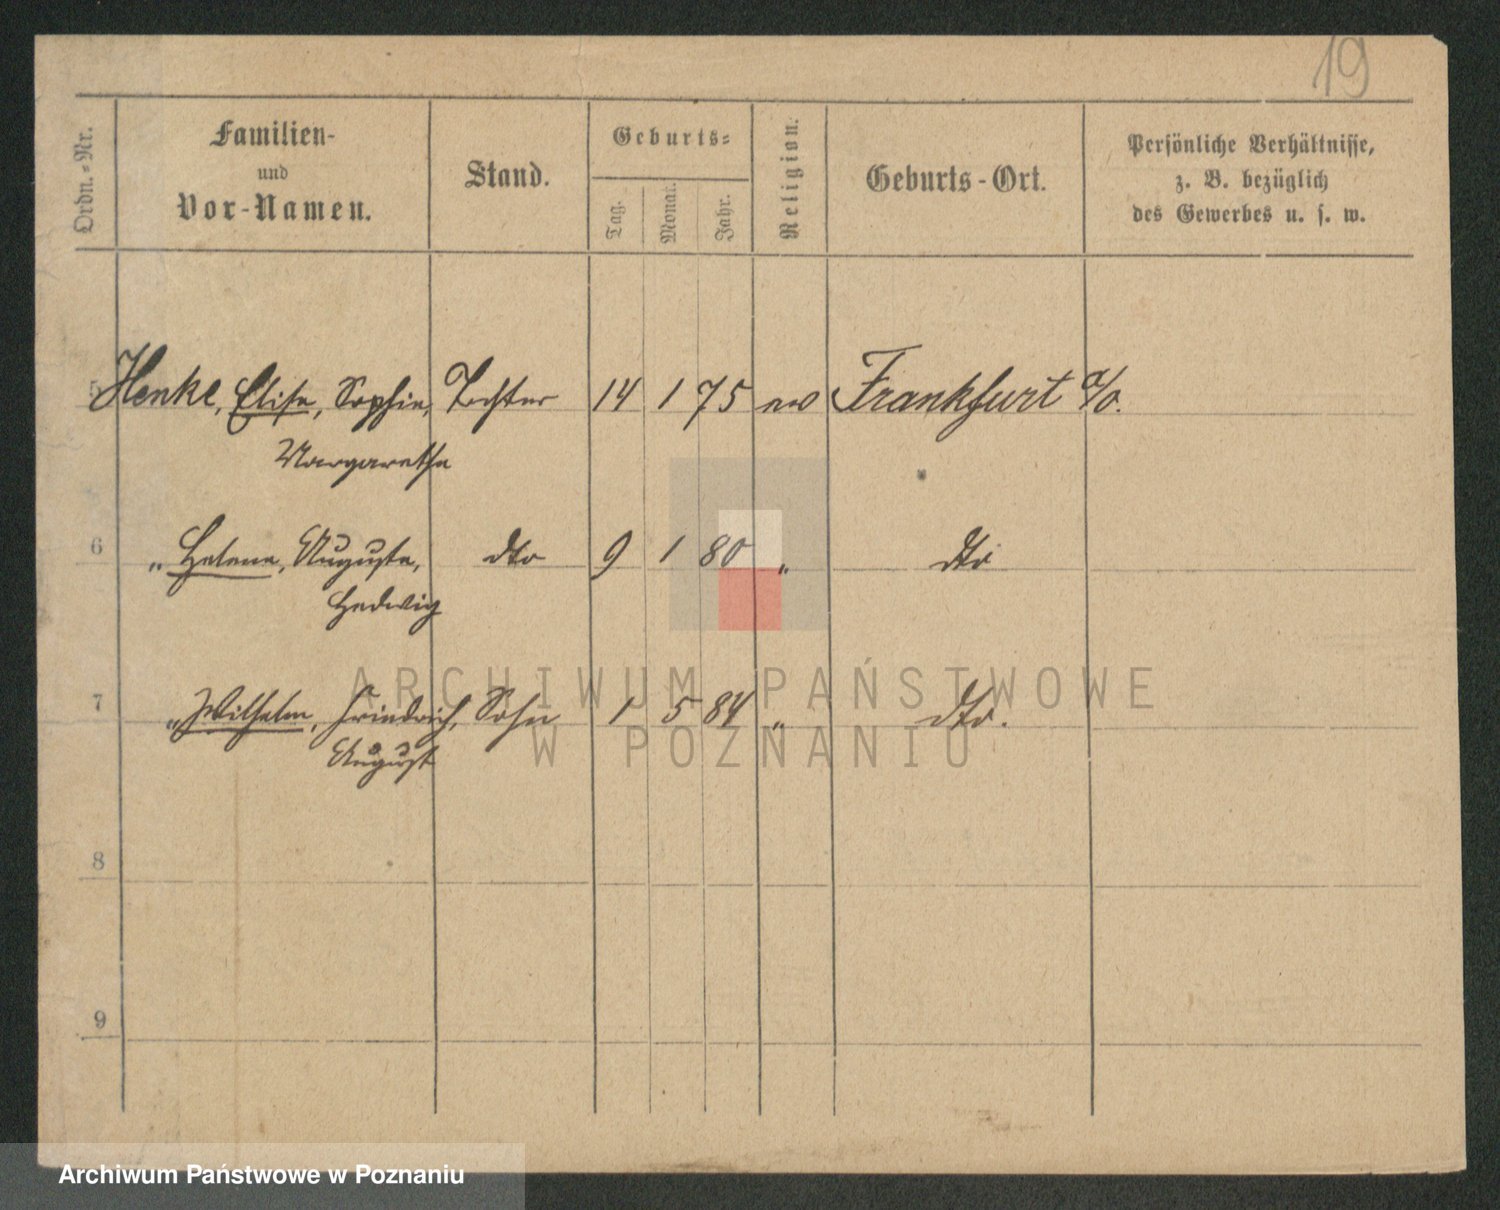 19
Ordn.-Nr.
Familien-
und
Vor-Namen.
Stand.
Geburts-
Tag.
Monat.
Jahr.
Religion.
Geburts-Ort.
Persönliche Verhältnisse,
z. B. bezüglich
des Gewerbes u. s. w.
5 Henke, Elise, Sophie, Tochter 14 1 75 ev Frankfurt a/o.
Margarethe
6 " Helene, Auguste, dto 9 1 80 " dto
Hedwig
7 " Wilhelm, Friedrich, Sohn 1 5 84 " dto.
August
8
9
ARCHIWUM PAŃSTWOWE
W POZNANIU
Archiwum Państwowe w Poznaniu